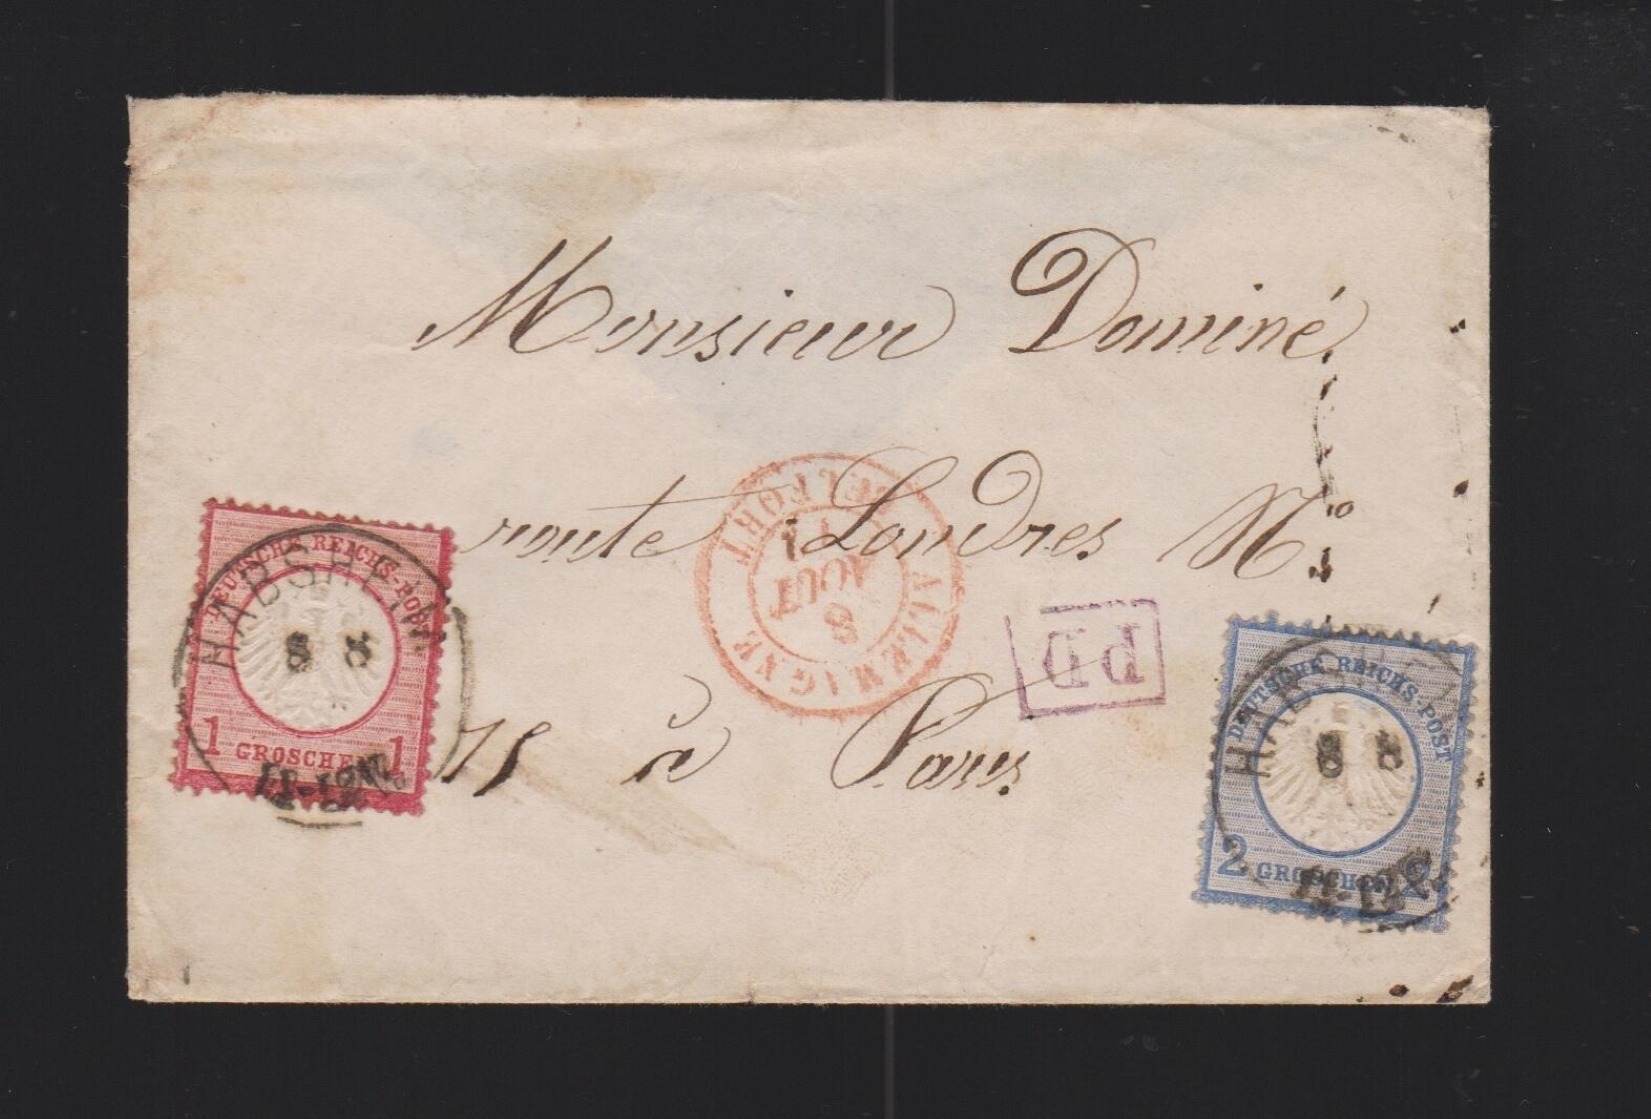 Monsieur Dominé
route Londres No.
15 à Paris
ALLEMAGNE BELFORT
8
AOUT
PD
DEUTSCHE REICHS-POST
1 GROSCHEN 1
HABSHEIM
8 8
11-12
DEUTSCHE REICHS-POST
2 GROSCHEN 2
HABSHEIM
8 8